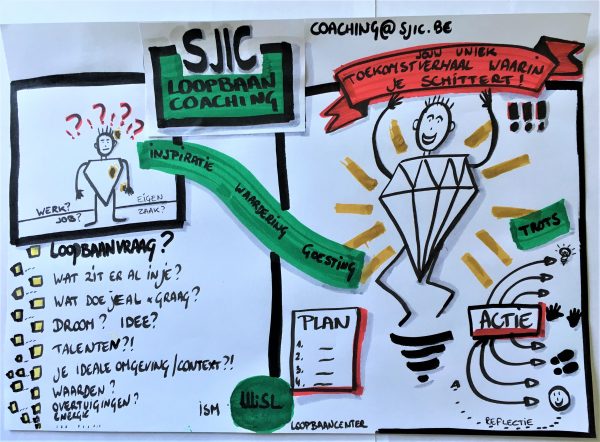 COACHING@SJIC.BE
SJIC
LOOPBAAN
COACHING
JOUW UNIEK
TOEKOMSTVERHAAL WAARIN
JE SCHITTERT!
!!!
? ? ? ? ?
WERK?
JOB?
EIGEN
ZAAK?
INSPIRATIE WAARDERING GOESTING
TROTS
LOOPBAANVRAAG?
WAT ZIT ER AL IN JE?
WAT DOE JE AL & GRAAG?
DROOM? IDEE?
TALENTEN?!
JE IDEALE OMGEVING/CONTEXT?!
WAARDEN?
OVERTUIGINGEN?
ENERGIE
PLAN
1.
2.
3.
4.
ACTIE
REFLECTIE
ISM
WiSL
LOOPBAANCENTER